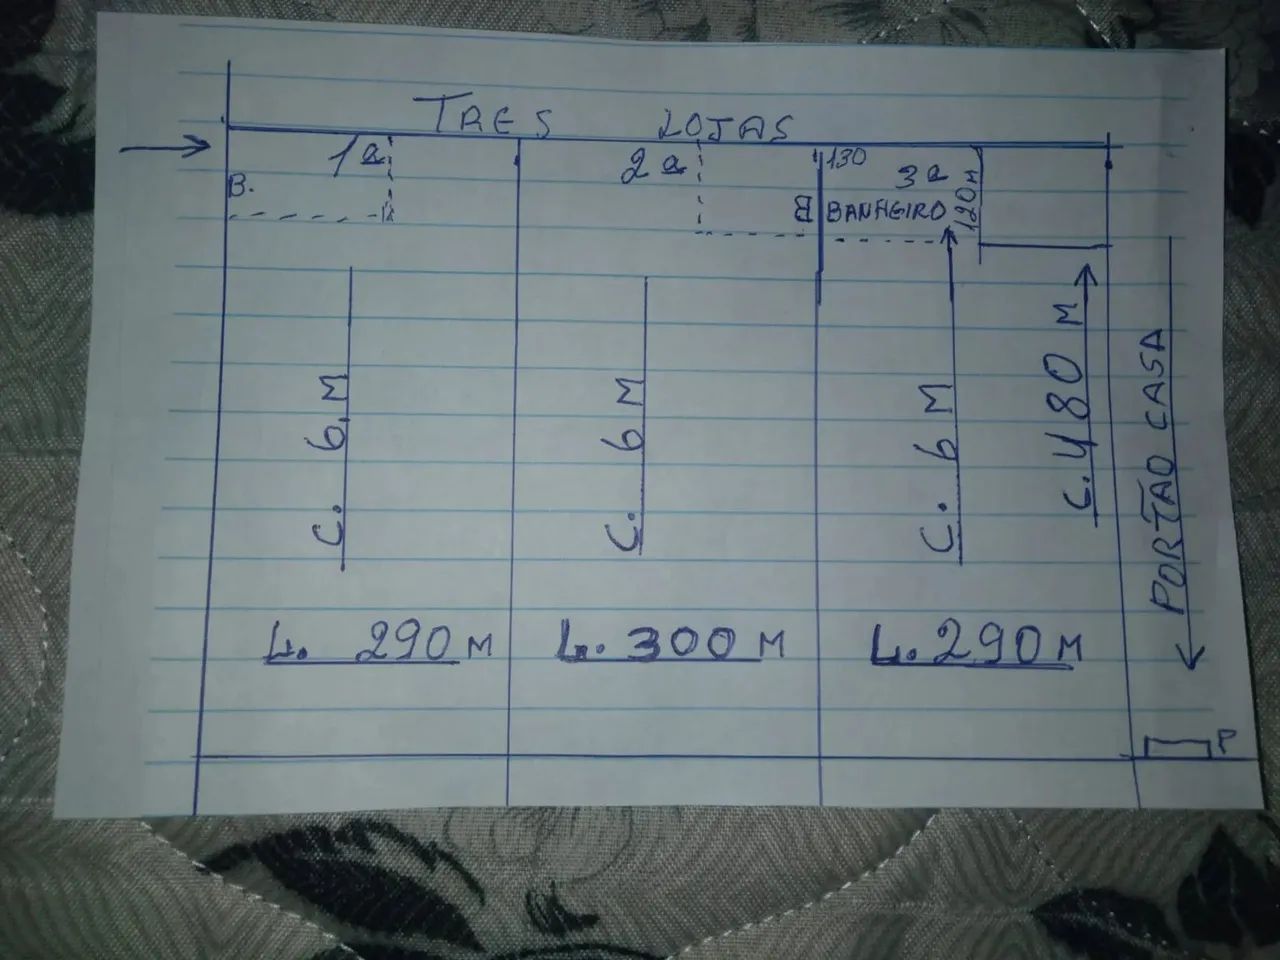 TRES LOJAS
1ª
2ª
130
3ª
B.
B
BANHEIRO
120 M
C. 6, M
C. 6 M
C. 6 M
C. 480 M
PORTÃO CASA
L. 290 M
L. 300 M
L. 290 M
P